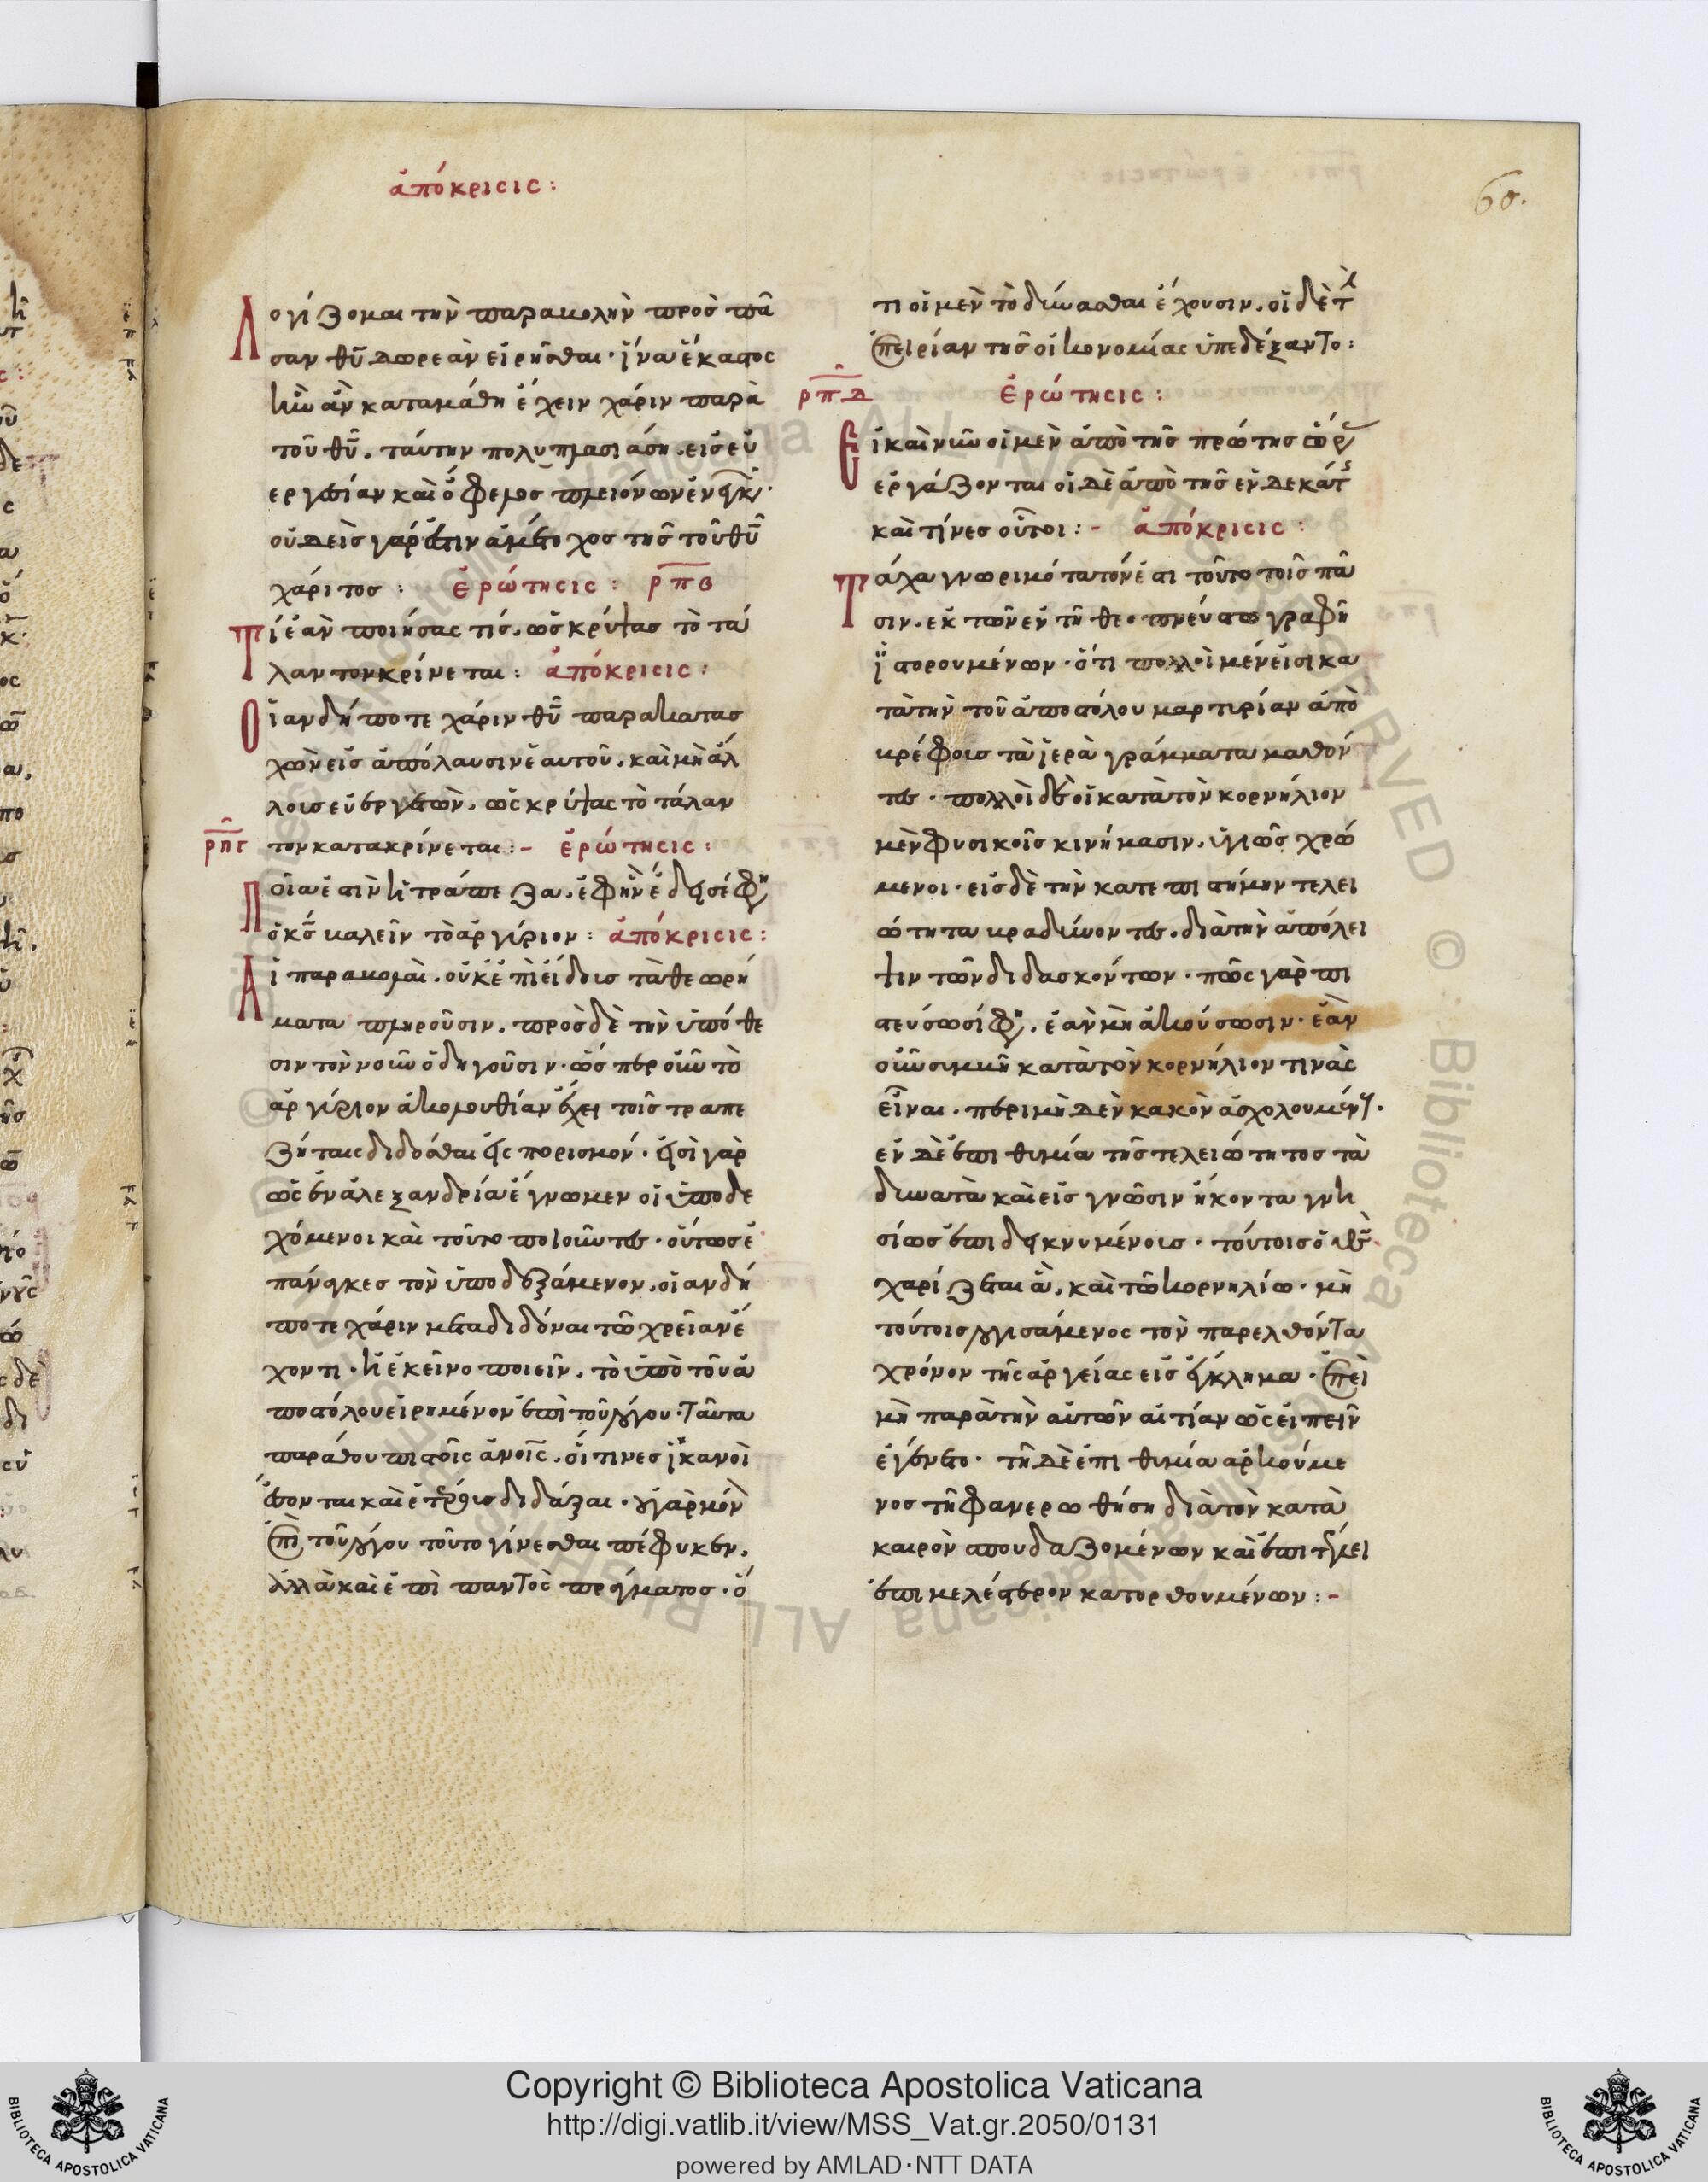 ἀπόκρισις:
60.
Λογίζομαι τὴν παραβολὴν πρὸς πᾶ
σαν θῦ δωρεὰν εἰρῆσθαι· ἵνα ἕκαστος
ἣν ἂν καταμάθη ἔχειν χάριν παρὰ
τοῦ θῦ, ταύτην πολυπλασιάση εἰς εὐ
εργεσίαν καὶ ὄφελος πλειόνων
οὐδεὶς γάρ ἐστιν ἀμέτοχος τῆς τοῦ θῦ
χάριτος: ἐρώτησις: ρπβ
Τί ἐὰν ποιήσας τίς, ὡς κρύψας τὸ τά
λαντον κρίνεται: ἀπόκρισις:
Οἵαν δήποτε χάριν θῦ παρακατασ
χὼν εἰς ἀπόλαυσιν ἑαυτοῦ, καὶ μὴ ἄλ
λοις εὐεργετῶν, ὡς κρύψας τὸ τάλαν
ρπγ τον κατακρίνεται:- ἐρώτησις:
Ποία ἐστὶν ἡ τράπεζα, ἐφ ἣν ἔδει σέ φη
ὁ κς βαλεῖν τὸ ἀργύριον: ἀπόκρισις:
Αἱ παραβολαὶ, οὐκ ἐπὶ εἴδοις τὰ θεωρή
ματα πληροῦσιν, πρὸς δὲ τὴν ὑπόθε
σιν τὸν νοῦν ὁδηγοῦσιν· ὥσπερ οὖν τὸ
ἀργύριον ἀκολουθίαν ἔχει τοῖς τραπε
ζήταις διδόσθαι εἰς πορισμόν· εἰσὶ γὰρ
ὡς ἐν ἀλεξανδρία ἔγνωμεν οἱ ὑποδε
χόμενοι καὶ τοῦτο ποιοῦντες· οὕτως ἐ
πάναγκες τὸν ὑποδεξάμενον, οἵαν δή
ποτε χάριν μεταδιδόναι τῶ χρεῖαν ἔ
χοντι· ἢ ἐκεῖνο ποιεῖν, τὸ ὑπὸ τοῦ ἀ
ποστόλου εἰρημένον ἐπὶ τοῦ λόγου· ταῦτα
παράθου πιστοῖς ἀνοῖς, οἵτινες ἱκανοὶ
ἔσονται καὶ ἑτέροις διδάξαι· οὐ γὰρ μόν
ἐπὶ τοῦ λόγου τοῦτο γίνεσθαι πέφυκεν,
ἀλλὰ καὶ ἐπὶ παντὸς πράγματος· ὅ
τι οἱ μὲν τὸ δύνασθαι ἔχουσιν, οἱ δὲ τ
πειρίαν τῆς οἰκονομίας ὑπεδέξαντο:
ρπδ ἐρώτησις:
Εἰ καὶ νῦν οἱ μὲν ἀπὸ τῆς πρώτης ὥρας
ἐργάζονται οἱ δὲ ἀπὸ τῆς ἑνδεκάτης
καὶ τίνες οὗτοι:- ἀπόκρισις:
Τάχα γνωριμότατόν ἐστι τοῦτο τοῖς πᾶ
σιν, ἐκ τῶν ἐν τῆ θεοπνεύστω γραφῆ
ἱστορουμένων· ὅτι πολλοὶ μέν εἰσι κα
τὰ τὴν τοῦ ἀποστόλου μαρτυρίαν ἀπὸ
βρέφοις τὰ ἱερὰ γράμματα μαθόν
τες· πολλοὶ δὲ οἱ κατὰ τὸν κορνήλιον
μὲν φυσικοῖς κινήμασιν, ὑγιῶς χρώ
μενοι· εἰς δὲ τὴν κατ ἐπιστήμην τελει
ώτητα βραδύνοντες, διὰ τὴν ἀπόλει
ψιν τῶν διδασκόντων· πῶς γὰρ πι
στεύσωσί φη, ἐὰν μὴ ἀκούσωσιν· ἐὰν
οὖν συμβῆ κατὰ τὸν κορνήλιον τινὰς
εἶναι· περὶ μηδὲν κακὸν ἀσχολουμένους·
ἐν δὲ ἐπιθυμία τῆς τελειώτητος τὰ
δυνατὰ καὶ εἰς γνῶσιν ἥκοντα γνη
σίως ἐπιδεικνυμένοις· τούτοις ὁ θς
χαρίζεται ἃ, καὶ τῶ κορνηλίω· μὴ
τούτοις λογισάμενος τὸν παρελθόντα
χρόνον τῆς ἀργείας εἰς ἔγκλημα· ἐπεὶ
μὴ παρὰ τὴν αὐτῶν αἰτίαν ὡς εἰπεῖν
ἐγένετο· τῆ δὲ ἐπιθυμία ἀρκούμε
νος τῆ φανερωθήση διὰ τὸν κατὰ
καιρὸν σπουδαζομένων καὶ ἐπὶ τέλει
ἐπιμελέστερον κατορθουμένων:-
Copyright © Biblioteca Apostolica Vaticana
http://digi.vatlib.it/view/MSS_Vat.gr.2050/0131
powered by AMLAD·NTT DATA
BIBLIOTECA APOSTOLICA VATICANA
BIBLIOTECA APOSTOLICA VATICANA